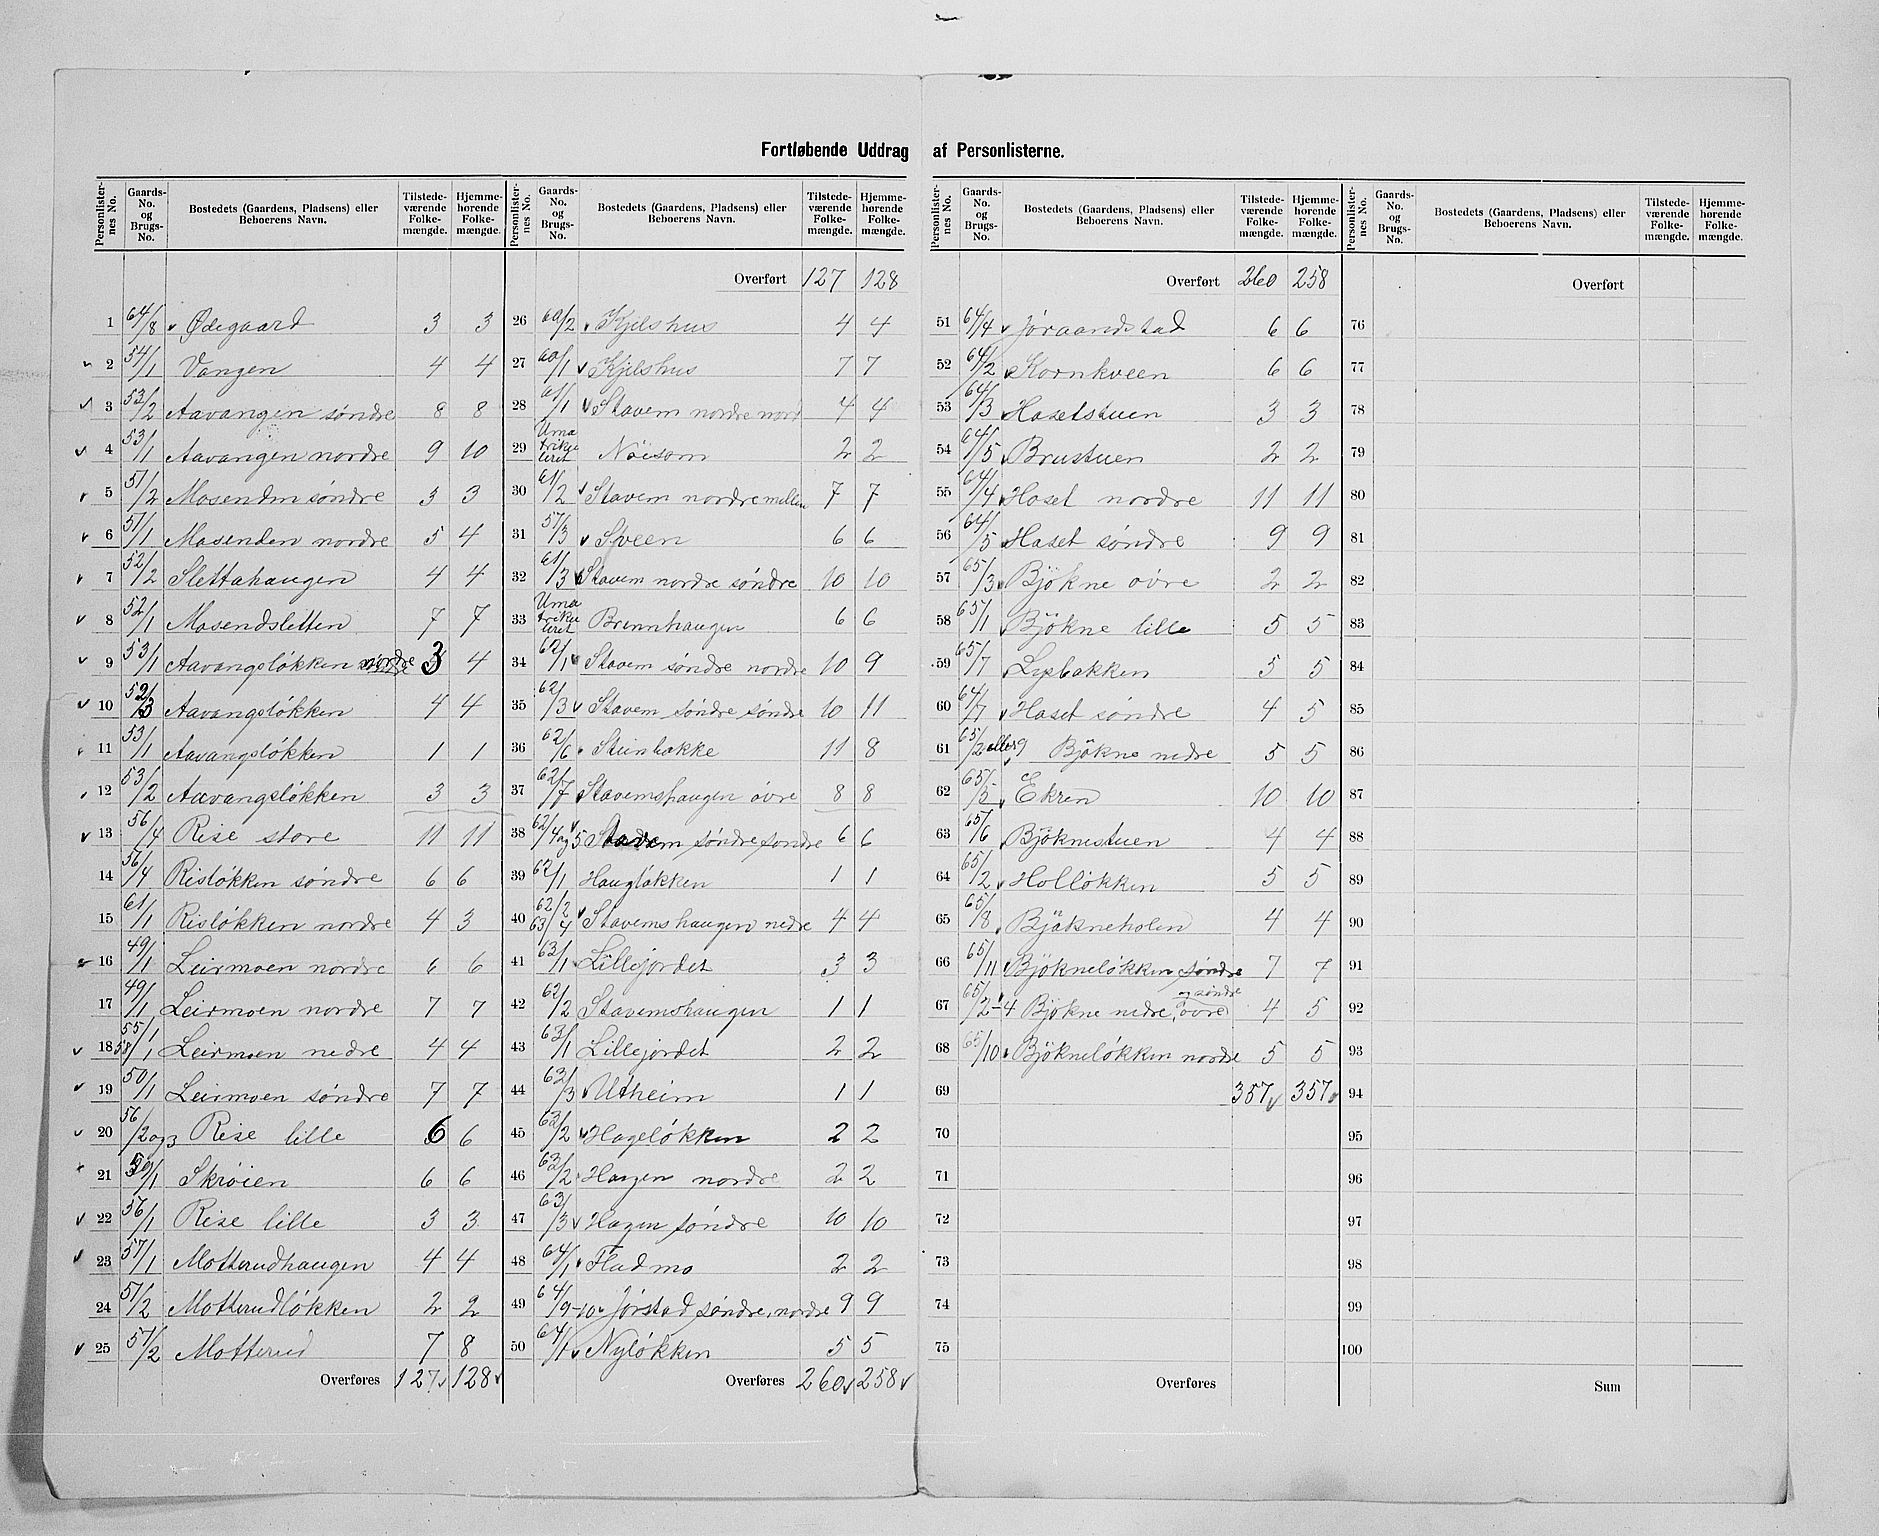 Fortløbende Uddrag af Personlisterne.
Personlister-nes No. Gaards-No. og Brugs-No. Bostedets (Gaardens, Pladsens) eller Beboerens Navn. Tilstede-værende Folke-mængde. Hjemme-hørende Folke-mængde.
1 64/8 Ødegaard 3 3
2 54/1 Vangen 4 4
3 53/2 Aavangen søndre 8 8
4 53/1 Aavangen nordre 9 10
5 51/2 Mosenden søndre 3 3
6 51/1 Mosenden nordre 5 4
7 52/2 Slettahaugen 4 4
8 52/1 Mosendsletten 7 7
9 53/1 Aavangsløkken nordre 3 4
10 52/3 Aavangsløkken 4 4
11 53/1 Aavangsløkken 1 1
12 53/2 Aavangsløkken 3 3
13 56/4 Rise store 11 11
14 56/4 Risløkken søndre 6 6
15 61/1 Risløkken nordre 4 3
16 49/1 Leirmoen nordre 6 6
17 49/1 Leirmoen nordre 7 7
18 55/1 58/1 Leirmoen nedre 4 4
19 50/1 Leirmoen søndre 7 7
20 56/2 og 3 Rise lille 6 6
21 59/1 Skrøien 6 6
22 56/1 Rise lille 3 3
23 57/1 Motterudhaugen 4 4
24 57/2 Motterudløkken 2 2
25 57/2 Motterud 7 8
Overføres 127 128
Personlister-nes No. Gaards-No. og Brugs-No. Bostedets (Gaardens, Pladsens) eller Beboerens Navn. Tilstede-værende Folke-mængde. Hjemme-hørende Folke-mængde.
Overført 127 128
26 60/2 Kjelshus 4 4
27 60/1 Kjelshus 7 7
28 61/1 Stavem nordre nord 4 4
29 Umatrikuleret Nöisom 2 2
30 61/2 Stavem nordre mellem 7 7
31 57/3 Sveen 6 6
32 61/3 Stavem nordre søndre 10 10
33 Umatrikuleret Brennhaugen 6 6
34 62/1 Stavem søndre nordre 10 9
35 62/3 Stavem søndre søndre 10 11
36 62/6 Steinbakke 11 8
37 62/7 Stavemshaugen øvre 8 8
38 62/4 og 5 Stavem søndre søndre 6 6
39 62/1 Haugløkken 1 1
40 62/2 63/4 Stavemshaugen nedre 4 4
41 63/1 Lillejordet 3 3
42 62/2 Stavemshaugen 1 1
43 63/1 Lillejordet 2 2
44 62/3 Utheim 1 1
45 63/2 Hageløkken 2 2
46 63/2 Hagen nordre 2 2
47 63/3 Hagen søndre 10 10
48 64/1 Fladmo 2 2
49 64/9-10 Jørstad søndre, nordre 9 9
50 64/1 Nyløkken 5 5
Overføres 260 258
Personlister-nes No. Gaards-No. og Brugs-No. Bostedets (Gaardens, Pladsens) eller Beboerens Navn. Tilstede-værende Folke-mængde. Hjemme-hørende Folke-mængde.
Overført 260 258
51 64/4 Jøraandstad 6 6
52 64/2 Kornkveen 6 6
53 64/3 Hasetstuen 3 3
54 64/5 Brustuen 2 2
55 64/4 Haset nordre 11 11
56 64/5 Haset søndre 9 9
57 65/3 Bjökne øvre 2 2
58 65/1 Bjökne lille 5 5
59 65/7 Lysbakken 5 5
60 64/7 Haset søndre 4 5
61 65/2 eller 9 Bjökne nedre 5 5
62 65/5 Ekren 10 10
63 65/6 Bjöknestuen 4 4
64 65/2 Holløkken 5 5
65 65/8 Bjökneholen 4 4
66 65/11 Bjökneløkken søndre 7 7
67 65/2-4 Bjökne nedre, øvre og søndre 4 5
68 65/10 Bjökneløkken nordre 5 5
69 357 357
70
71
72
73
74
75
Overføres
Personlister-nes No. Gaards-No. og Brugs-No. Bostedets (Gaardens, Pladsens) eller Beboerens Navn. Tilstede-værende Folke-mængde. Hjemme-hørende Folke-mængde.
Overført
76
77
78
79
80
81
82
83
84
85
86
87
88
89
90
91
92
93
94
95
96
97
98
99
100
Sum